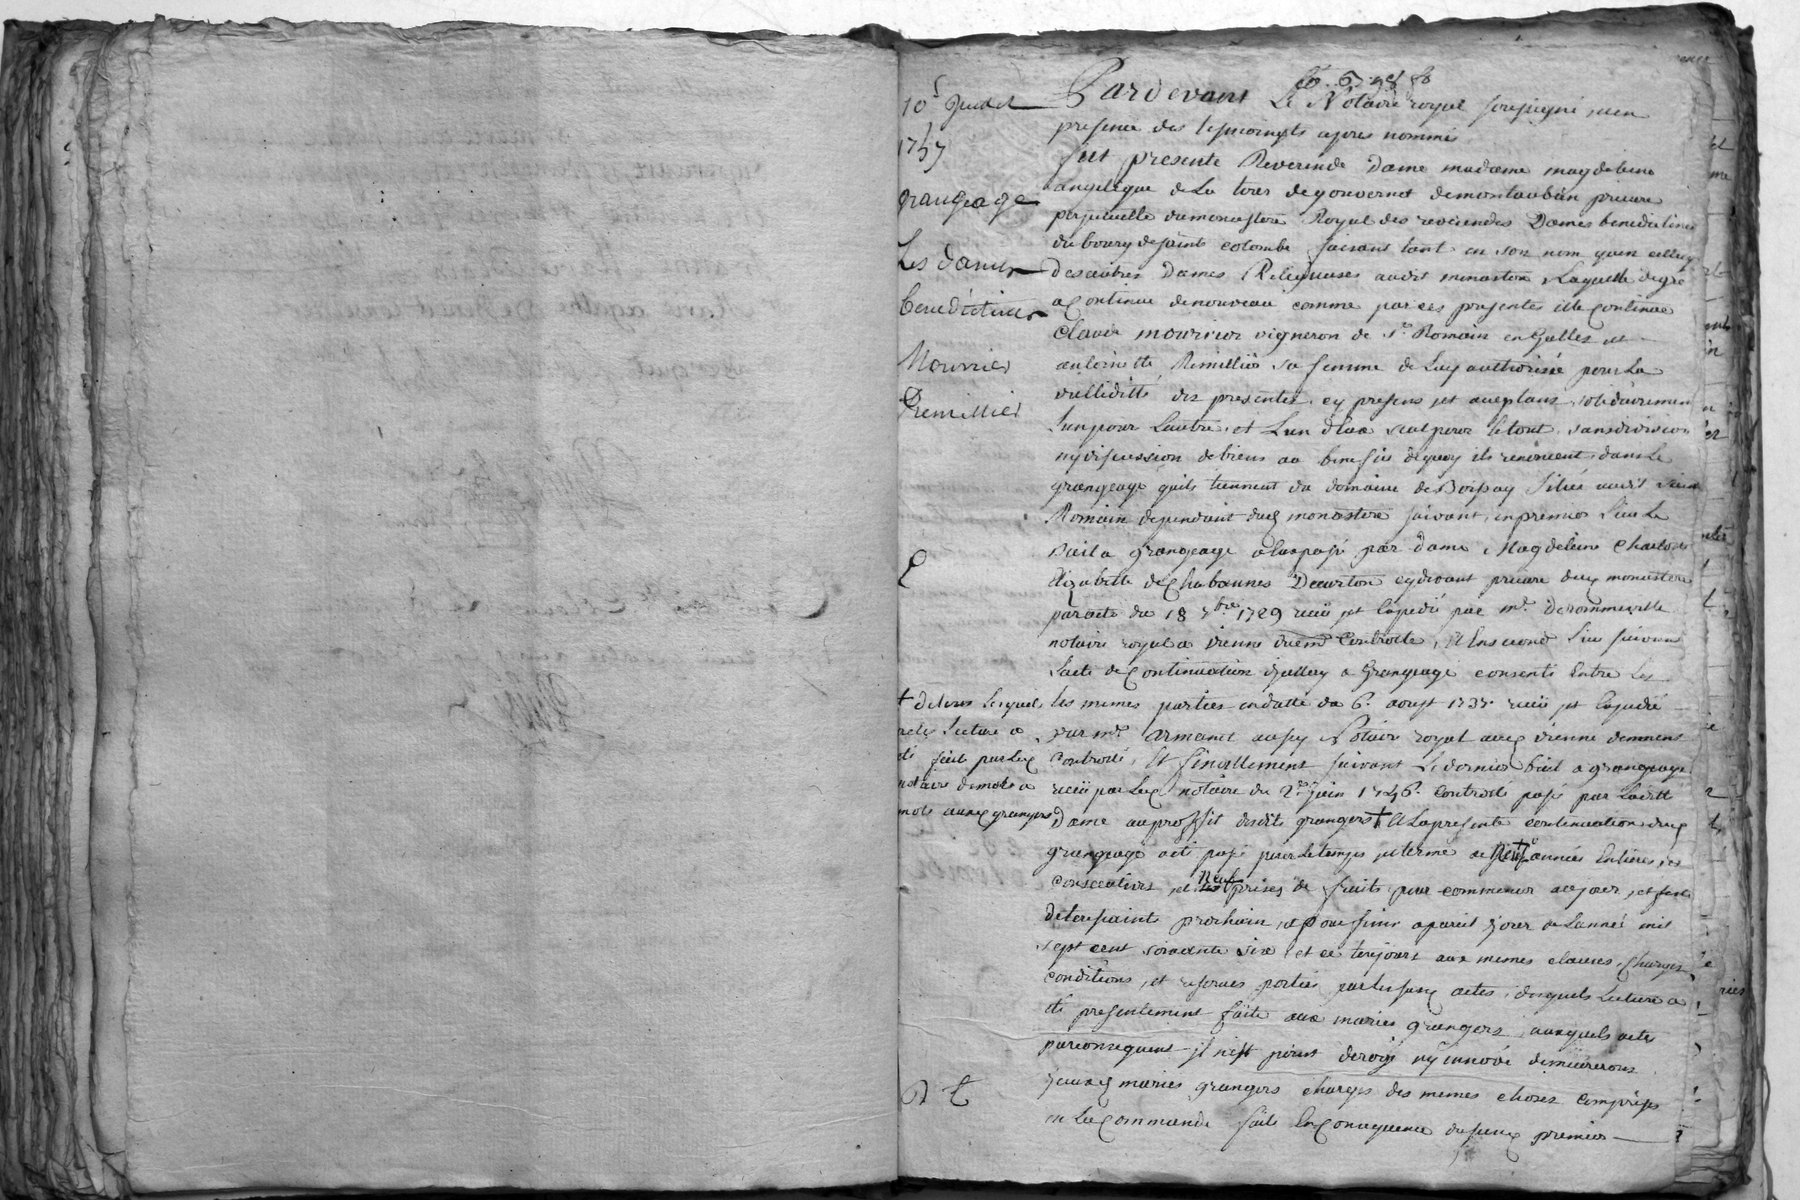 10e Juillet
1757
Grangeage
Les dames
benedictines
Mourrier
Remillier
Pardevant Le Notaire royal soussigné, et en
presence des tesmoingts apres nommés
fut presente Reverende Dame madame magdeleine
angelique de La tour de gouvernet de montauban prieure
perpetuelle du monastere Royal des reverendes Dames benedictines
du bourg de sainte colombe faisant tant en son nom qu'en celluy
des autres Dames Religieuses audit monastere Laquelle de gré
a Continue de nouveau comme par ces presentes elle Continue
Claude mourrier vigneron de St Romain en Galles et
antoinette Remillier sa femme de Luy authorisée pour La
vallidité des presentes, cy presens et aceptans solidairement
L'un pour Lautre et L'un d'eux seul pour le tout, sans division
ny discussion de biens au benefice dequoy ils renoncent, dans Le
grangeage quils tiennent du domaine de Boissay situé audit saint
Romain dependant dud monastere suivant, en premier Lieu Le
bail a grangeage a eux passé par Dame Magdelaine Charlotte
Elizabette de Chabannes De curton cydevant prieure dud monastere
par acte du 18 7bre 1729 receu et Expedié par me derommeville
notaire royal a vienne duem Controllé, Et En second Lieu suivant
Lacte de Continuation dudit a Grangeage consenti Entre Les
les mêmes parties en datte du 6e aoust 1737 receu et Expedié
par me armanet aussy Notaire royal aud vienne duement
Controllé, Et finallement suivant Le dernier bail a grangeage
receu par Led notaire du 2e juin 1746 Controllé passé par Ladite
Dame au proffit desdits grangers † Et La presente continuation dud
grangeage a été passé pour le temps et terme de Neuf années Entieres et
Consecutives, et Neuf prises de fruits pour commencer a jour et feste
de toussaints prochain, et pour finir a pareil jour de L'année mil
sept cent soixante six, et ce toujours aux memes clauses, Charges
conditions, et reserves portées par les susd actes, desquels Lecture a
été presentement faite aux mariés grangers, auxquels actes
par consequent il n'est point derogé ny innové demeurerons
Iceux d mariés grangers chargés des memes choses Comprises
en La Commande faite En Consequence dususd premier
† de tous Lesquels
actes Lecture a
été faite par Led
notaire de mots a
mots auxd grangers